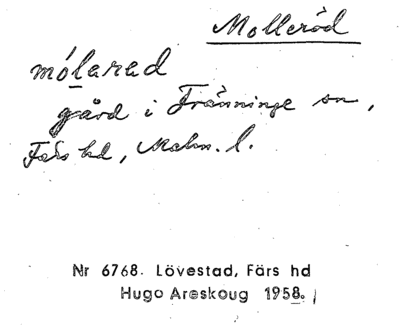 Molleröd
mólarad
gård i Fränninge sn,
Färs hd, Malm. l.
Nr 6768. Lövestad, Färs hd
Hugo Areskoug 1958.